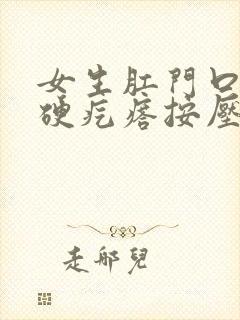 女生肛門口
硬疙瘩按壓
走邪兒